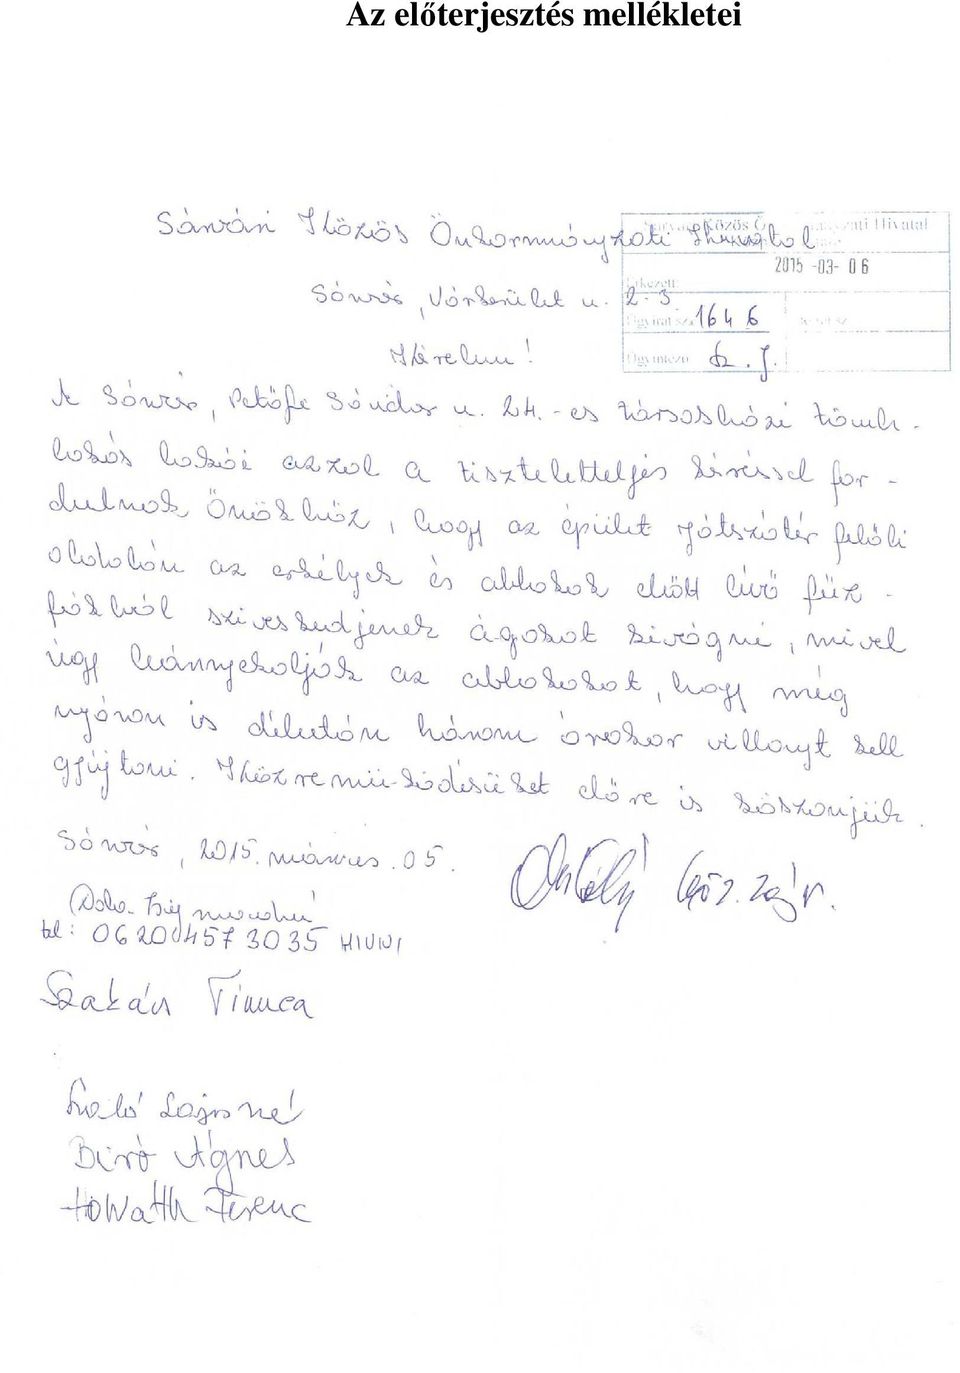 Az előterjesztés mellékletei
Sárvári Közös Önkormányzati Hivatal
2015 -03- 06
Érkezett:
Sárvár, Várkerület u. 2-3
Ügyirat sz. 1646
Kérelem!
Ügyintéző
A Sárvár, Petőfi Sándor u. 24.-es társasházi tömb-
lakás lakói azzal a tiszteletteljes kéréssel for-
dulnak Önökhöz, hogy az épület játszótér felőli
oldalán az erkélyek és ablakok előtt lévő fűz-
fákból szíveskedjenek ágakat kivágni, mivel
úgy leárnyékolják az ablakokat, hogy még
nyáron is délután három órakor villanyt kell
gyújtani. Közreműködésüket előre is köszönjük.
Sárvár, 2015. március. 05.
köz.
tel: 06 20 457 3035
Szakács Timea
Szabó Lajosné
Biró Ágnes
Horváth Ferenc